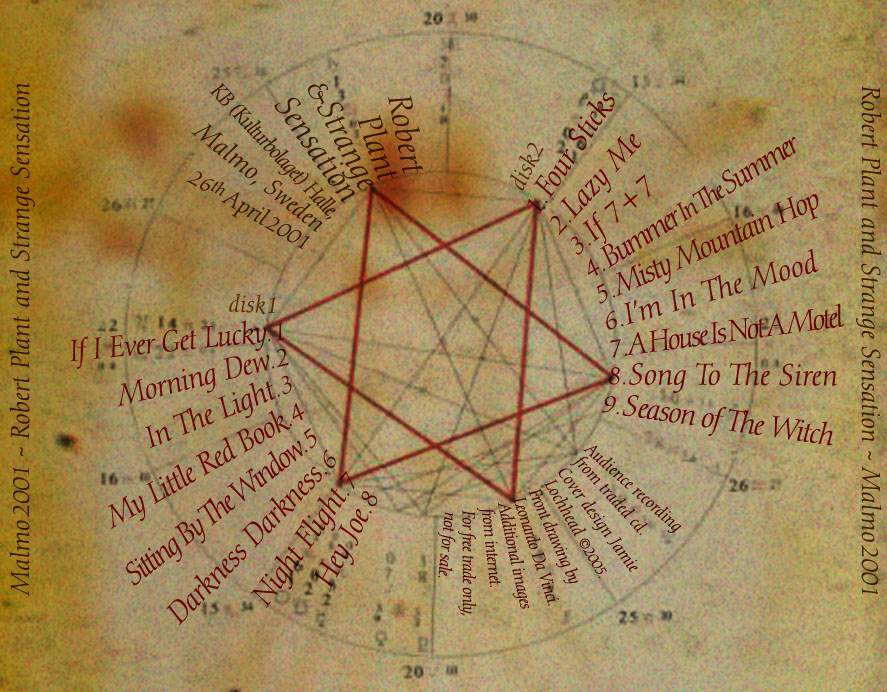 Malmo 2001 ~ Robert Plant and Strange Sensation
Robert
Plant
& Strange
Sensation
KB (Kulturbolaget) Halle,
Malmo, Sweden
26th April 2001
disk1
If I Ever Get Lucky.1
Morning Dew.2
In The Light.3
My Little Red Book.4
Sitting By The Window.5
Darkness Darkness.6
Night Flight.7
Hey Joe.8
disk2
1.Four Sticks
2.Lazy Me
3.If 7+7
4.Bummer In The Summer
5.Misty Mountain Hop
6.I'm In The Mood
7.A House Is Not A Motel
8.Song To The Siren
9.Season of The Witch
Audience recording
from traded cd.
Cover design Jamie
Lochhead ©2005.
From drawing by
Leonardo Da Vinci.
Additional images
from internet.
For free trade only,
not for sale.
Robert Plant and Strange Sensation ~ Malmo 2001
20
10
16
26
25
30
20
10
15
16
26